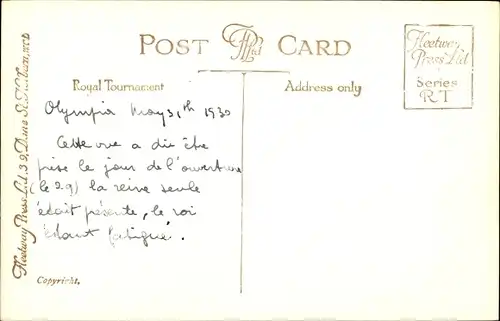 POST CARD
FPLtd
Fleetway
Press Ltd
Series
RT
Royal Tournament
Address only
Olympia May 31th 1930
Cette vue a dû être
prise le jour de l'ouverture
(le 29) la reine seule
était présente, le roi
étant fatigué.
Copyright.
Fleetway Press Ltd. 3-9, Dane St. Holborn, W.C.1